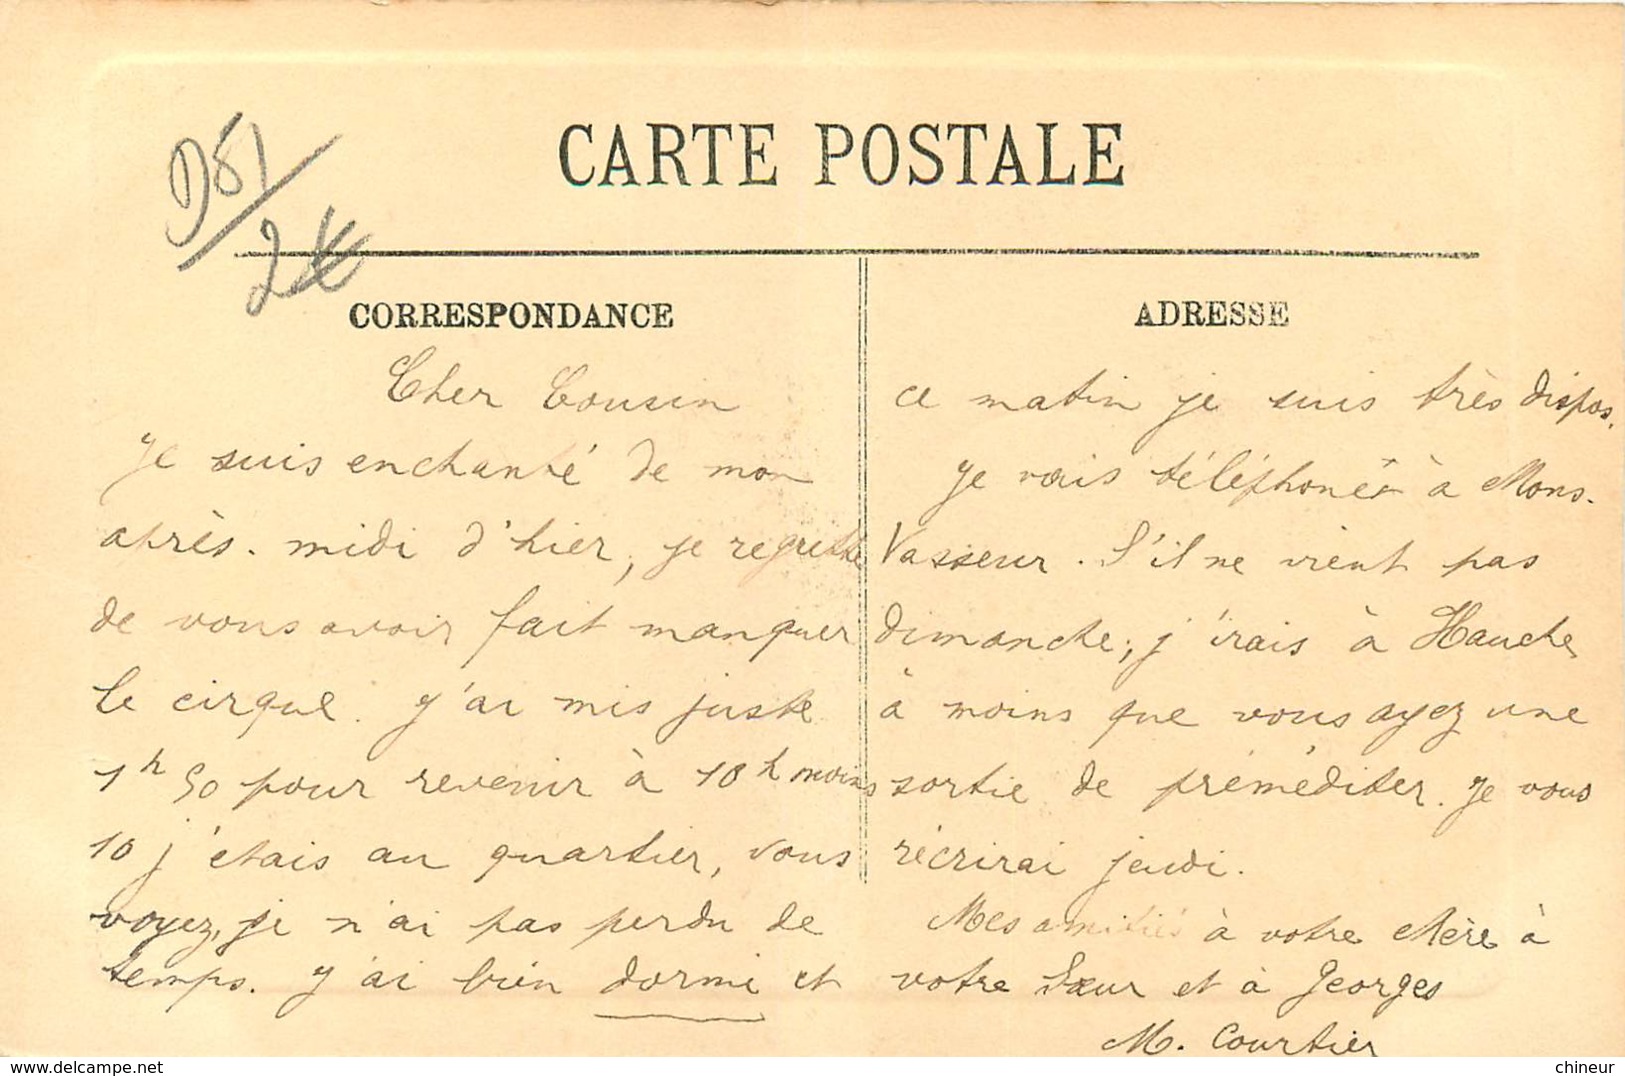 CARTE POSTALE
D51/
2€
CORRESPONDANCE
Cher Cousin
Je suis enchanté de mon
après-midi d'hier, je regrette
de vous avoir fait manquer
le cirque. J'ai mis juste
1h 50 pour revenir à 10h moins
10 j'étais au quartier, vous
voyez, je n'ai pas perdu de
temps. J'ai bien dormi et
ADRESSE
ce matin je suis très dispos.
Je vais téléphoner à Mons.
Vasseur. S'il ne vient pas
dimanche, j'irais à
à moins que vous ayez une
sortie de préméditer. Je vous
récrirai jeudi.
Mes amitiés à votre Mère à
votre Sœur et à Georges
M. Courtier
delcampe.net
chineur